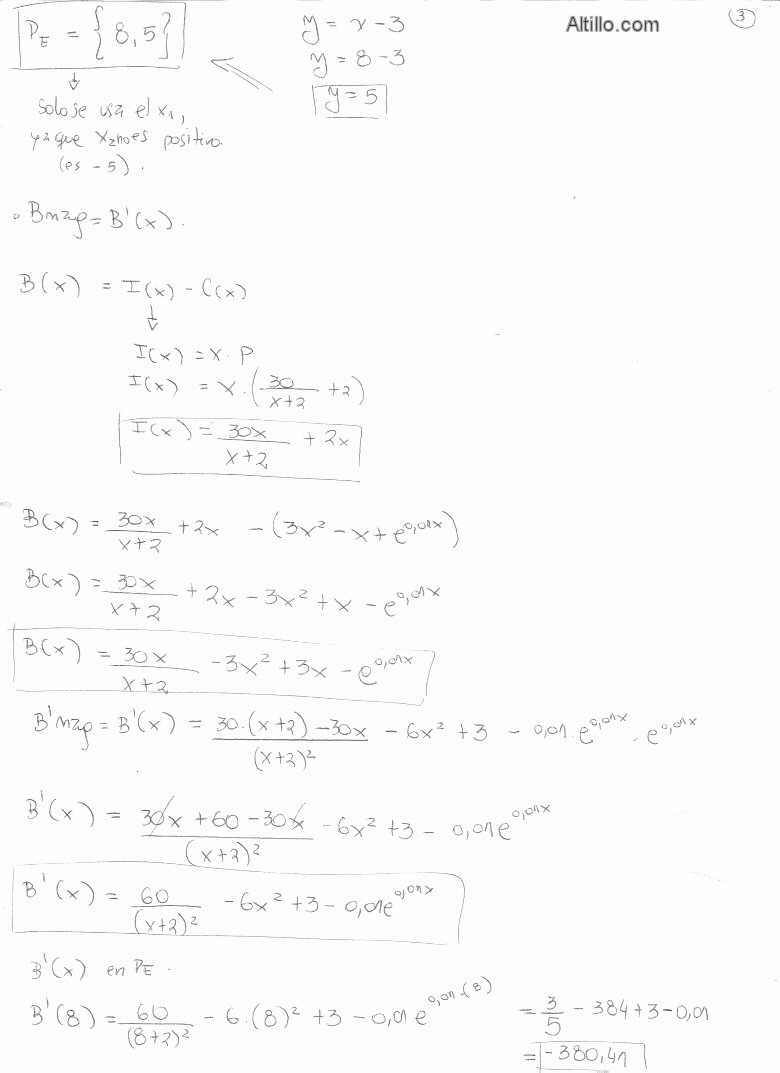 P_E = {8,5}
y = x - 3
Altillo.com
3
y = 8 - 3
y = 5
Solo se usa el x₁,
ya que x₂ no es positivo
(es -5).
Bmg = B'(x).
B(x) = I(x) - C(x)
I(x) = x . P
I(x) = x . (30/(x+2) + 2)
I(x) = 30x/(x+2) + 2x
B(x) = 30x/(x+2) + 2x - (3x² - x + e^(0,01x))
B(x) = 30x/(x+2) + 2x - 3x² + x - e^(0,01x)
B(x) = 30x/(x+2) - 3x² + 3x - e^(0,01x)
B'mg = B'(x) = (30.(x+2) - 30x)/(x+2)² - 6x² + 3 - 0,01.e^(0,01x) . e^(0,01x)
B'(x) = (30x + 60 - 30x)/(x+2)² - 6x² + 3 - 0,01e^(0,01x)
B'(x) = 60/(x+2)² - 6x² + 3 - 0,01e^(0,01x)
B'(x) en P_E.
B'(8) = 60/(8+2)² - 6.(8)² + 3 - 0,01e^(0,01.(8)) = 3/5 - 384 + 3 - 0,01
= -380,41